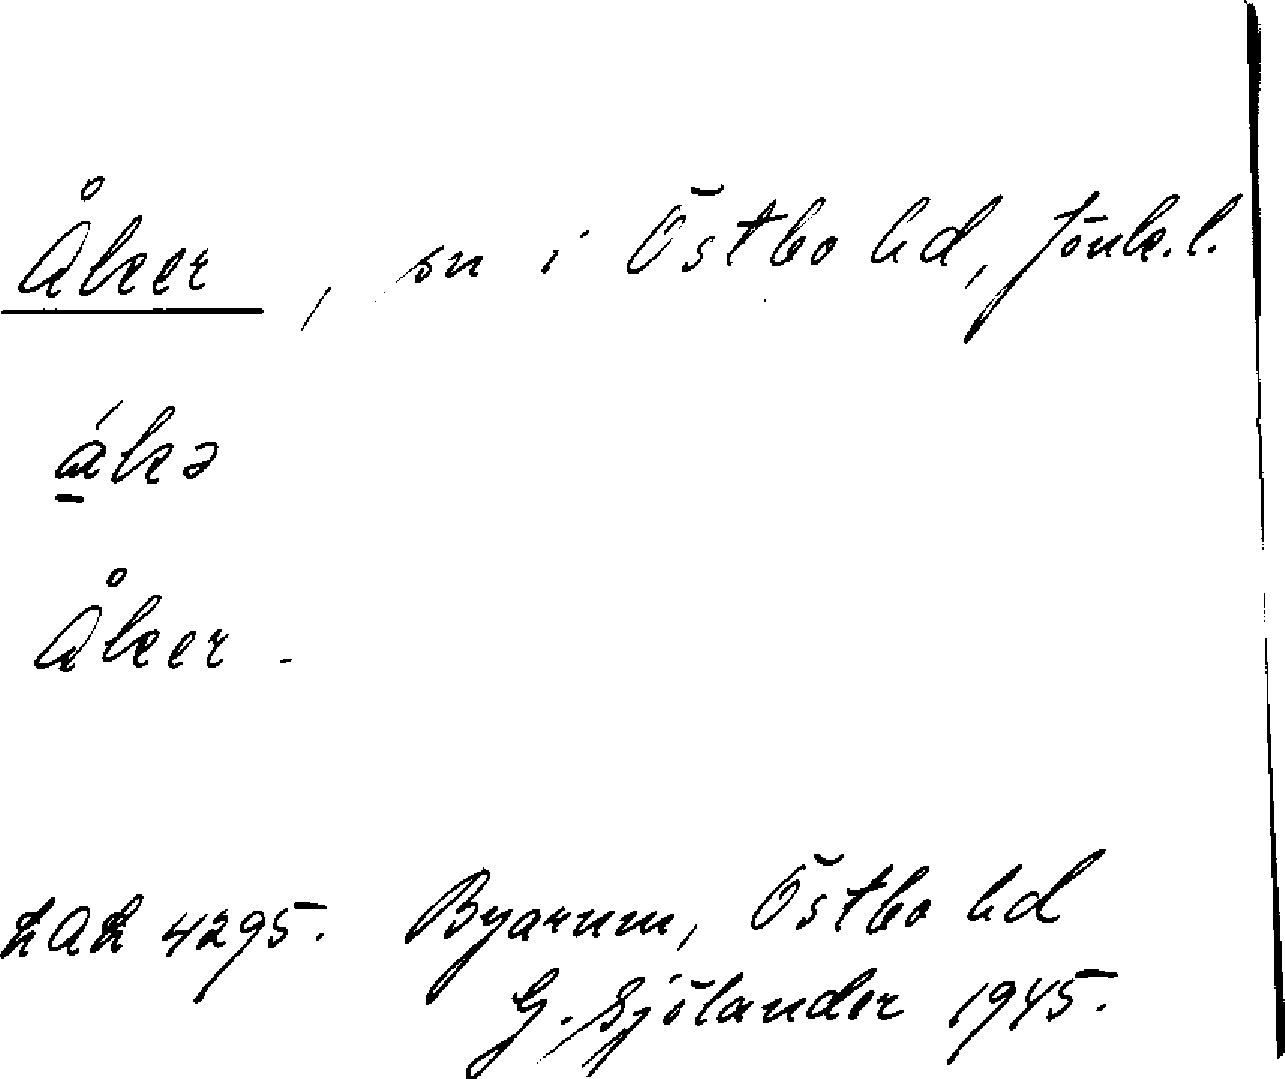 Åker, sn i Östbo hd, Jönk.l.
ák̠ə
Åker.
LAL 4295. Byarum, Östbo hd
G. Sjölander 1945.